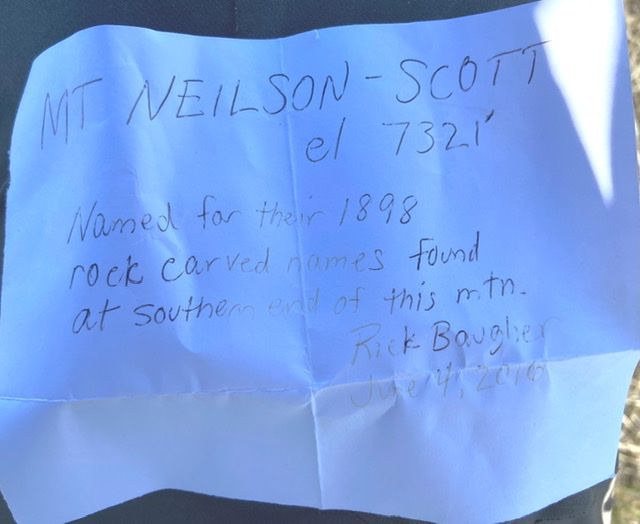 MT NEILSON-SCOTT
el 7321'
Named for their 1898
rock carved names found
at southern end of this mtn.
Rick Baugher
June 4,